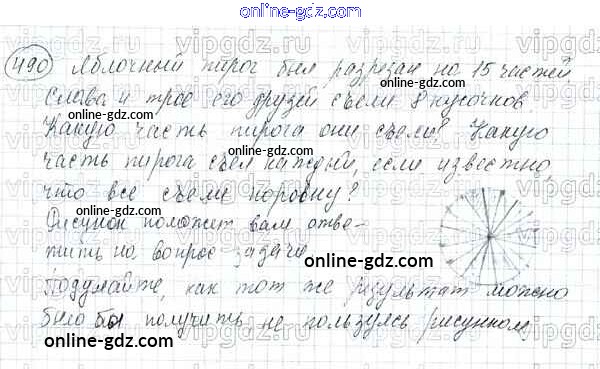 online-gdz.com
490 Яблочный пирог был разрезан на 15 частей
Слава и трое его друзей съели 8 кусочков
Какую часть пирога они съели? Какую
часть пирога съел каждый, если известно,
что все съели поровну?
Рисунок поможет вам отве-
тить на вопрос задачи
Подумайте, как тот же результат можно
было бы получить, не пользуясь рисунком
online-gdz.com
online-gdz.com
online-gdz.com
online-gdz.com
online-gdz.com
online-gdz.com